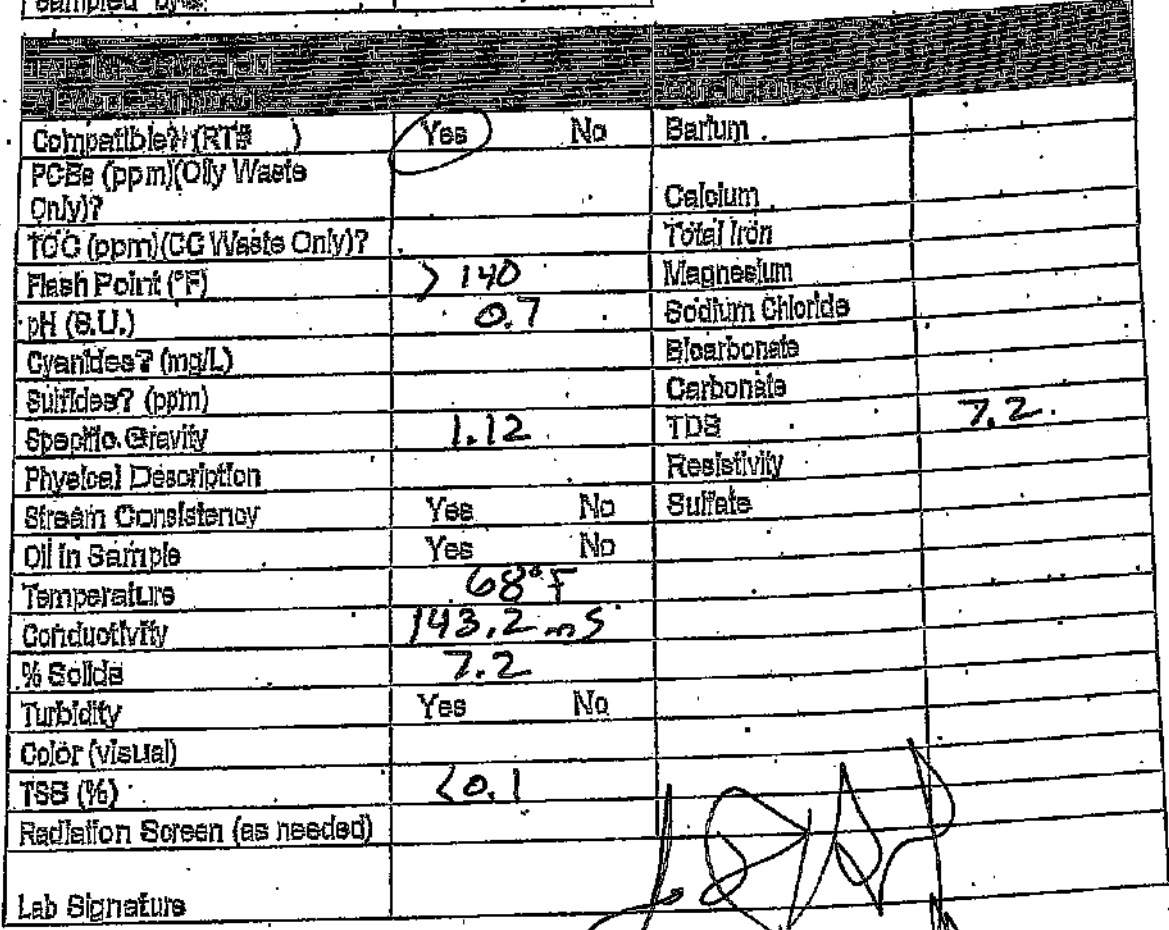 Sampled by
Compatible? (RT# ) Yes No Barium
PCBs (ppm)(Oily Waste
Only)? Calcium
TOC (ppm)(CC Waste Only)? Total Iron
Flash Point (°F) > 140 Magnesium
pH (S.U.) 0.7 Sodium Chloride
Cyanides? (mg/L) Bicarbonate
Sulfides? (ppm) Carbonate
Specific Gravity 1.12 TDS 7.2
Physical Description Resistivity
Stream Consistency Yes No Sulfate
Oil in Sample Yes No
Temperature 68°F
Conductivity 143.2 mS
% Solids 7.2
Turbidity Yes No
Color (visual)
TSS (%) <0.1
Radiation Screen (as needed)
Lab Signature